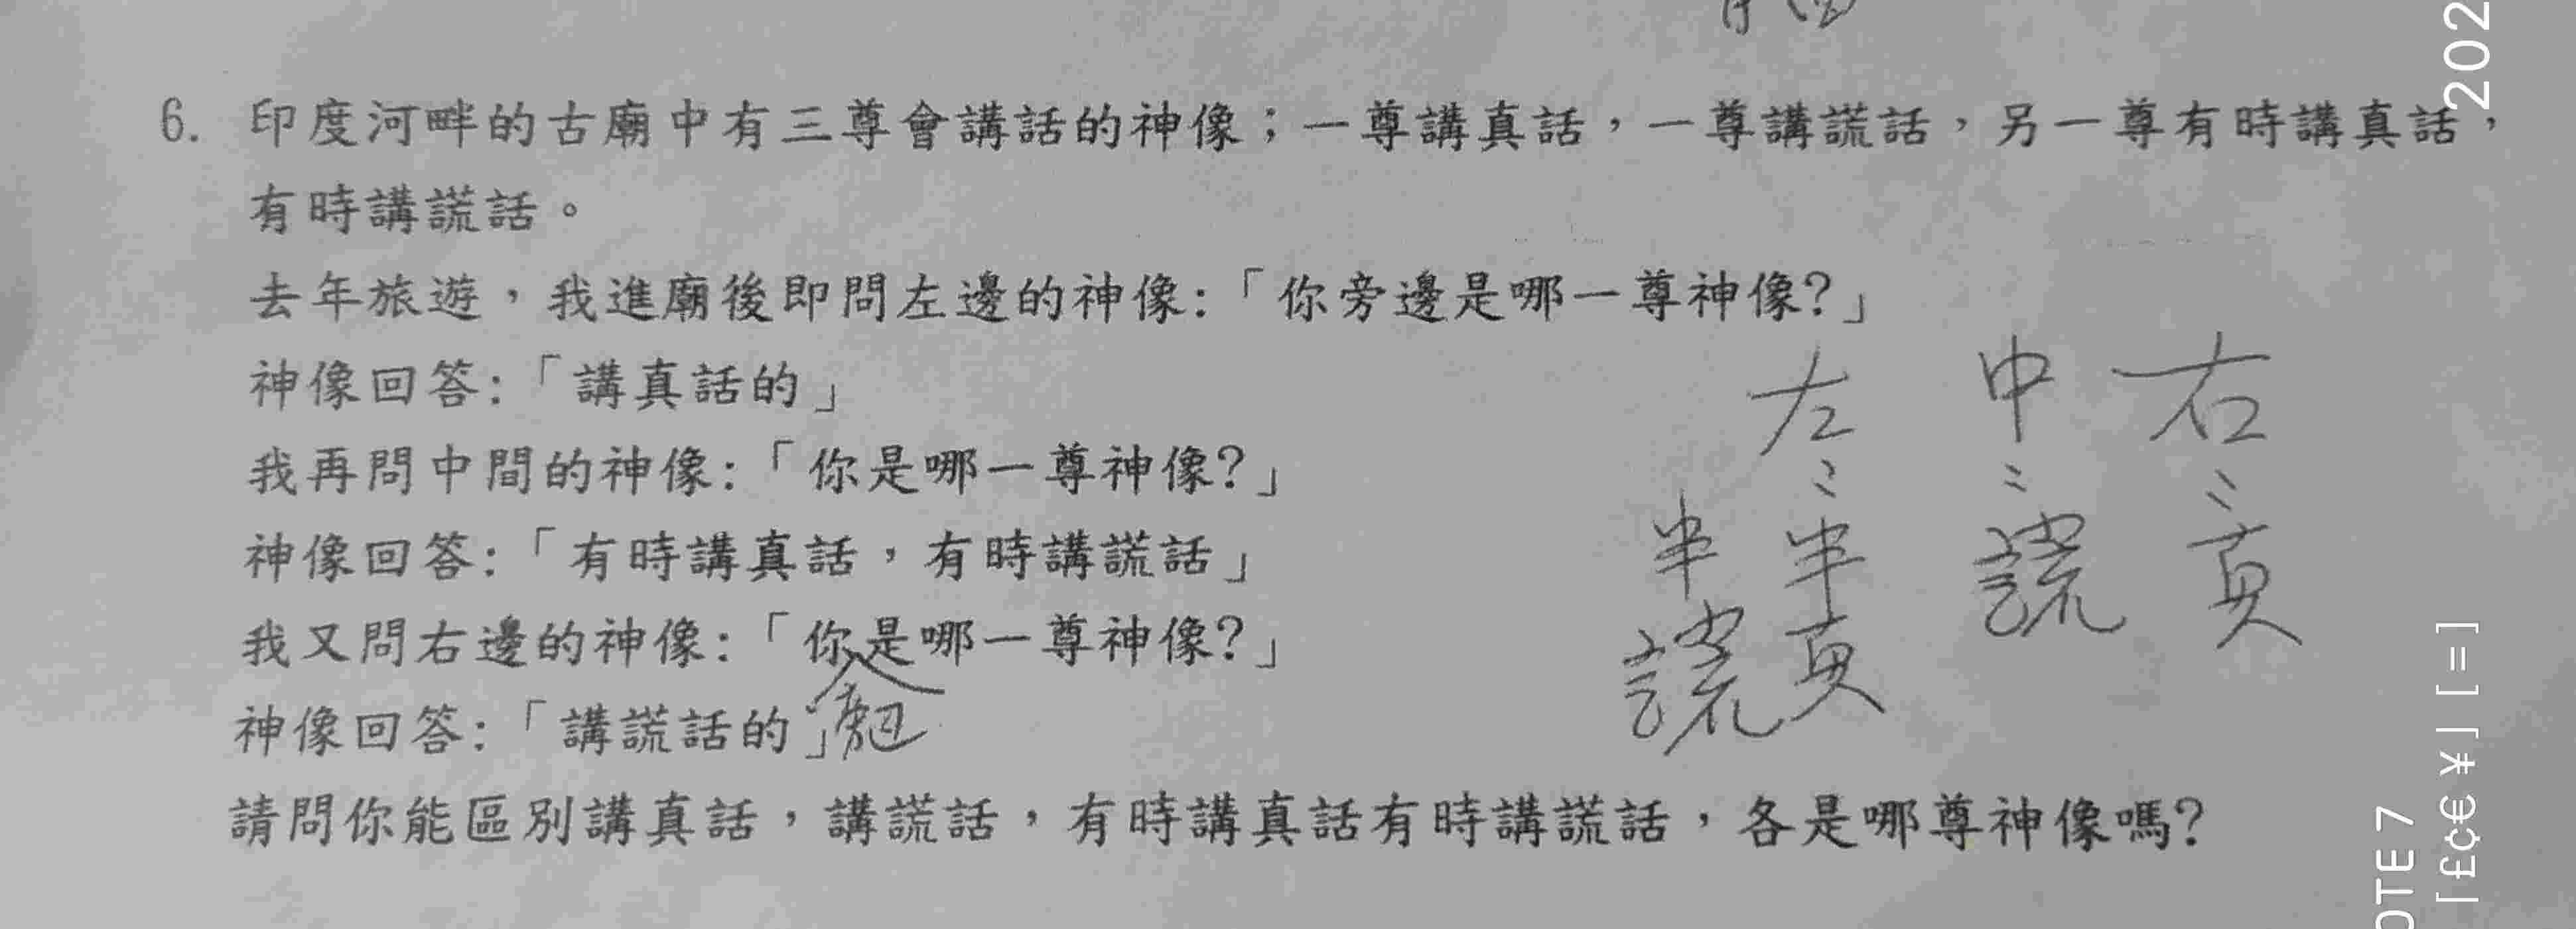 6. 印度河畔的古廟中有三尊會講話的神像；一尊講真話，一尊講謊話，另一尊有時講真話，
有時講謊話。
去年旅遊，我進廟後即問左邊的神像:「你旁邊是哪一尊神像?」
神像回答:「講真話的」
我再問中間的神像:「你是哪一尊神像?」
神像回答:「有時講真話，有時講謊話」
我又問右邊的神像:「你是哪一尊神像?」
神像回答:「講謊話的」
請問你能區別講真話，講謊話，有時講真話有時講謊話，各是哪尊神像嗎?
左：半真半謊
中：謊
右：真
202
OTE 7